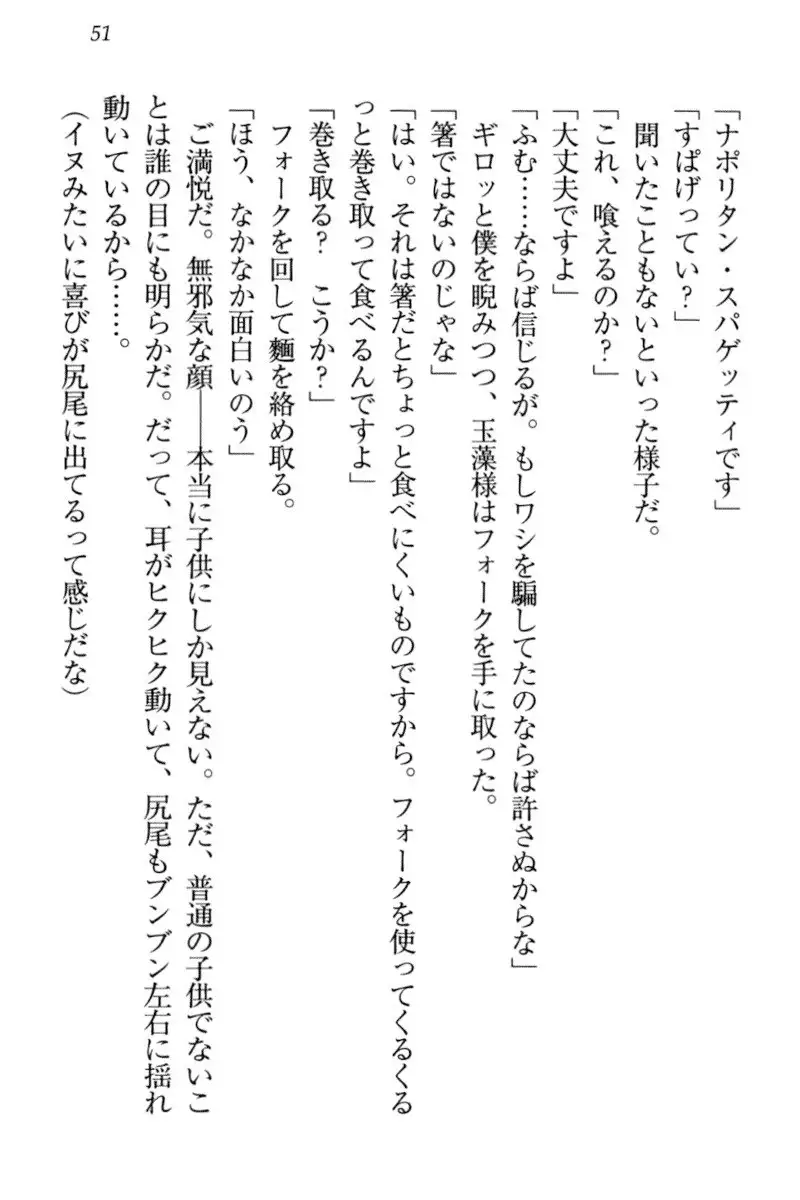 51
「ナポリタン・スパゲッティです」
「すぱげってい？」
聞いたこともないといった様子だ。
「これ、喰えるのか？」
「大丈夫ですよ」
「ふむ……ならば信じるが。もしワシを騙してたのならば許さぬからな」
ギロッと僕を睨みつつ、玉藻様はフォークを手に取った。
「箸ではないのじゃな」
「はい。それは箸だとちょっと食べにくいものですから。フォークを使ってくるくる
っと巻き取って食べるんですよ」
「巻き取る？　こうか？」
フォークを回して麵を絡め取る。
「ほう、なかなか面白いのう」
ご満悦だ。無邪気な顔――本当に子供にしか見えない。ただ、普通の子供でないこ
とは誰の目にも明らかだ。だって、耳がヒクヒク動いて、尻尾もブンブン左右に揺れ
動いているから……。
（イヌみたいに喜びが尻尾に出てるって感じだな）